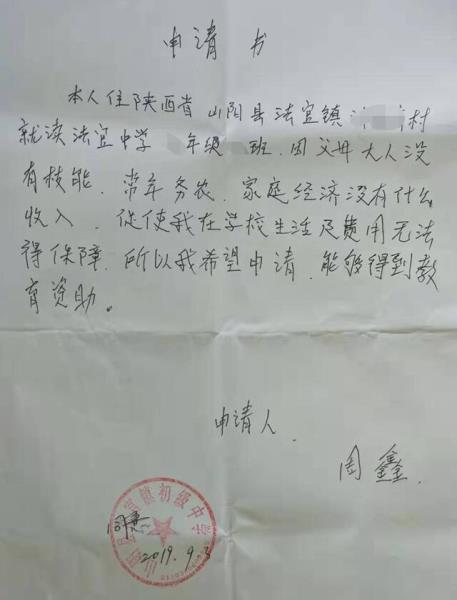 申请书
本人住陕西省山阳县法官镇村
就读法官中学年级班.因父母大人没
有技能.常年务农.家庭经济没有什么
收入.促使我在学校生活及费用无法
得保障.所以我希望申请.能够得到教
育资助。
申请人.
周鑫.
官镇初级中学
同意
2019.9.3